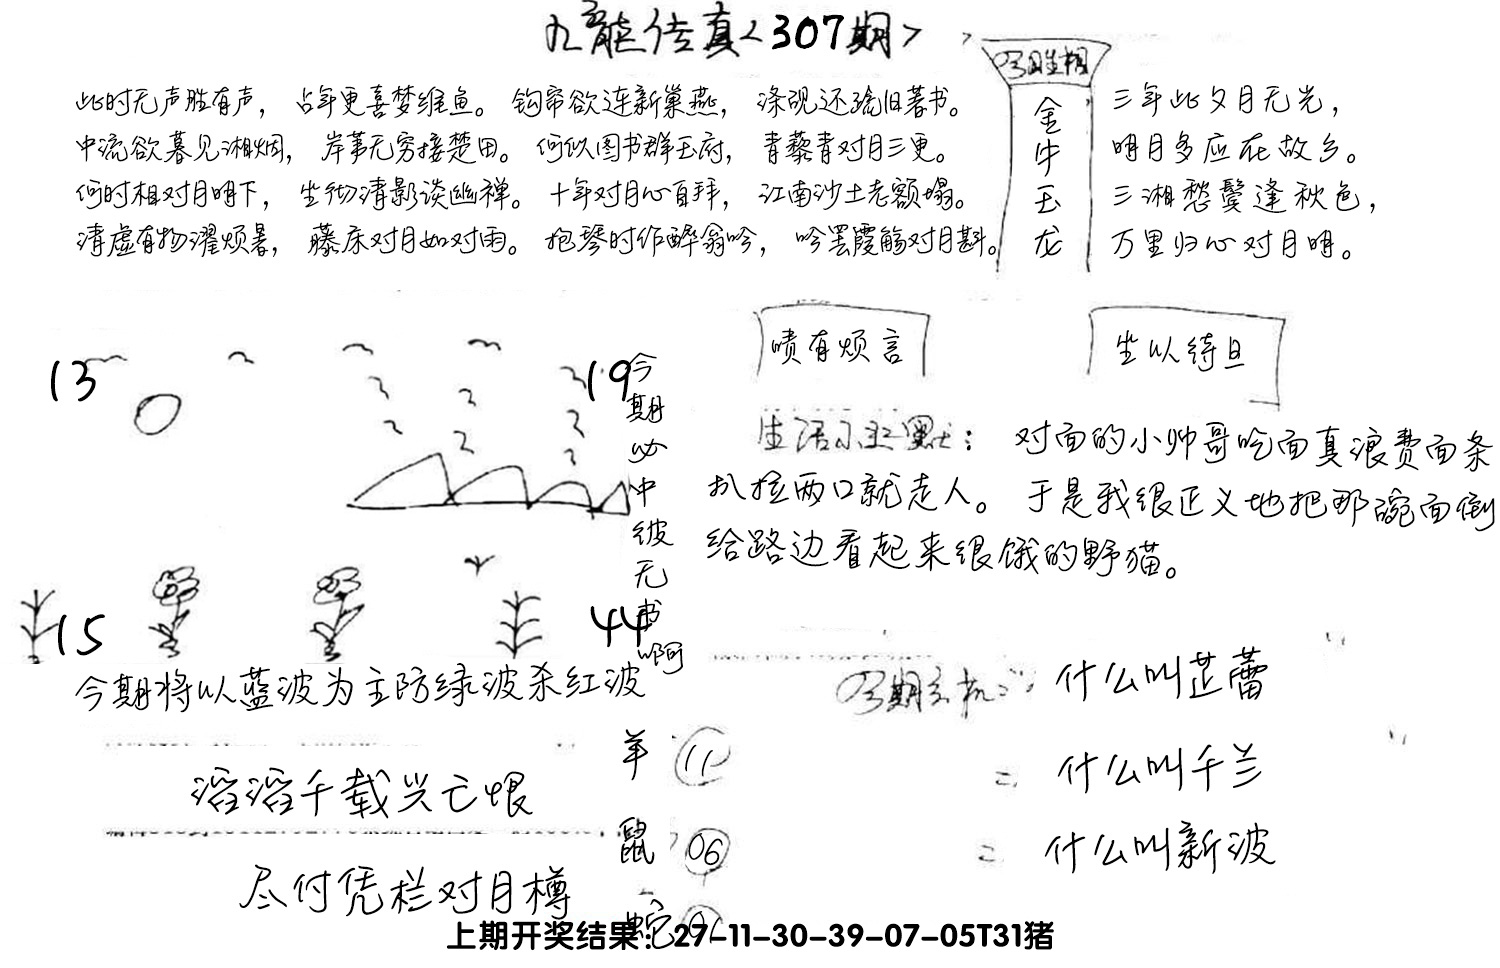 九龙传真<307期>
此时无声胜有声，占年更喜梦维鱼。钩帘欲连新巢燕，涤砚还疏旧著书。
中流欲暮见湘烟，岸苇无穷接楚田。何似图书群玉府，青藜青对月三更。
何时相对月明下，坐彻清影谈幽禅。十年对月心自拜，江南沙土老额塌。
清虚有物濯烦暑，藤床对月如对雨。抱琴时作醉翁吟，吟罢霞觞对月斟。
金
牛
玉
龙
三年此夕月无光，
明月多应在故乡。
三湘愁鬓逢秋色，
万里归心对月明。
13
19
15
44
今
期
必
中
彼
无
书
啊
今期将以蓝波为主防绿波杀红波
啧有烦言
坐以待旦
对面的小帅哥吃面真浪费面条
扒拉两口就走人。于是我很正义地把那碗面倒
给路边看起来很饿的野猫。
什么叫芷蕾
什么叫千兰
什么叫新波
滔滔千载兴亡恨
尽付凭栏对月樽
羊 11
鼠 06
蛇
上期开奖结果：27-11-30-39-07-05T31猪